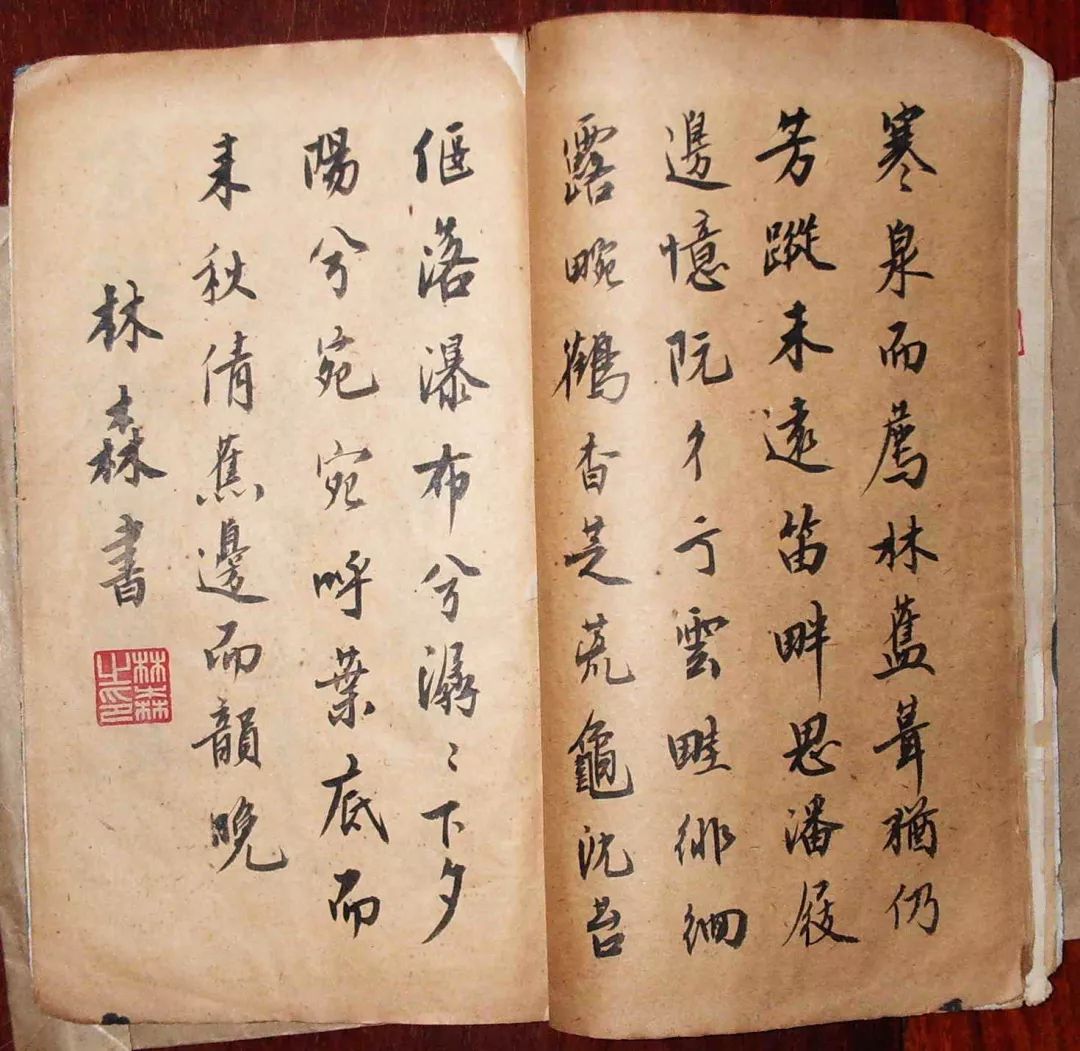 寒泉而薦林藍舊葺猶仍
芳蹤未遠笛畔思潘屐
邊憶阮彳亍雲畦徘徊
露畹鶴杳芝荒龜沈苔
偃落瀑布兮潺〻下夕
陽兮宛宛呼葉底而
来秋倩蕉邊而韻晚
林森書
林森
之印